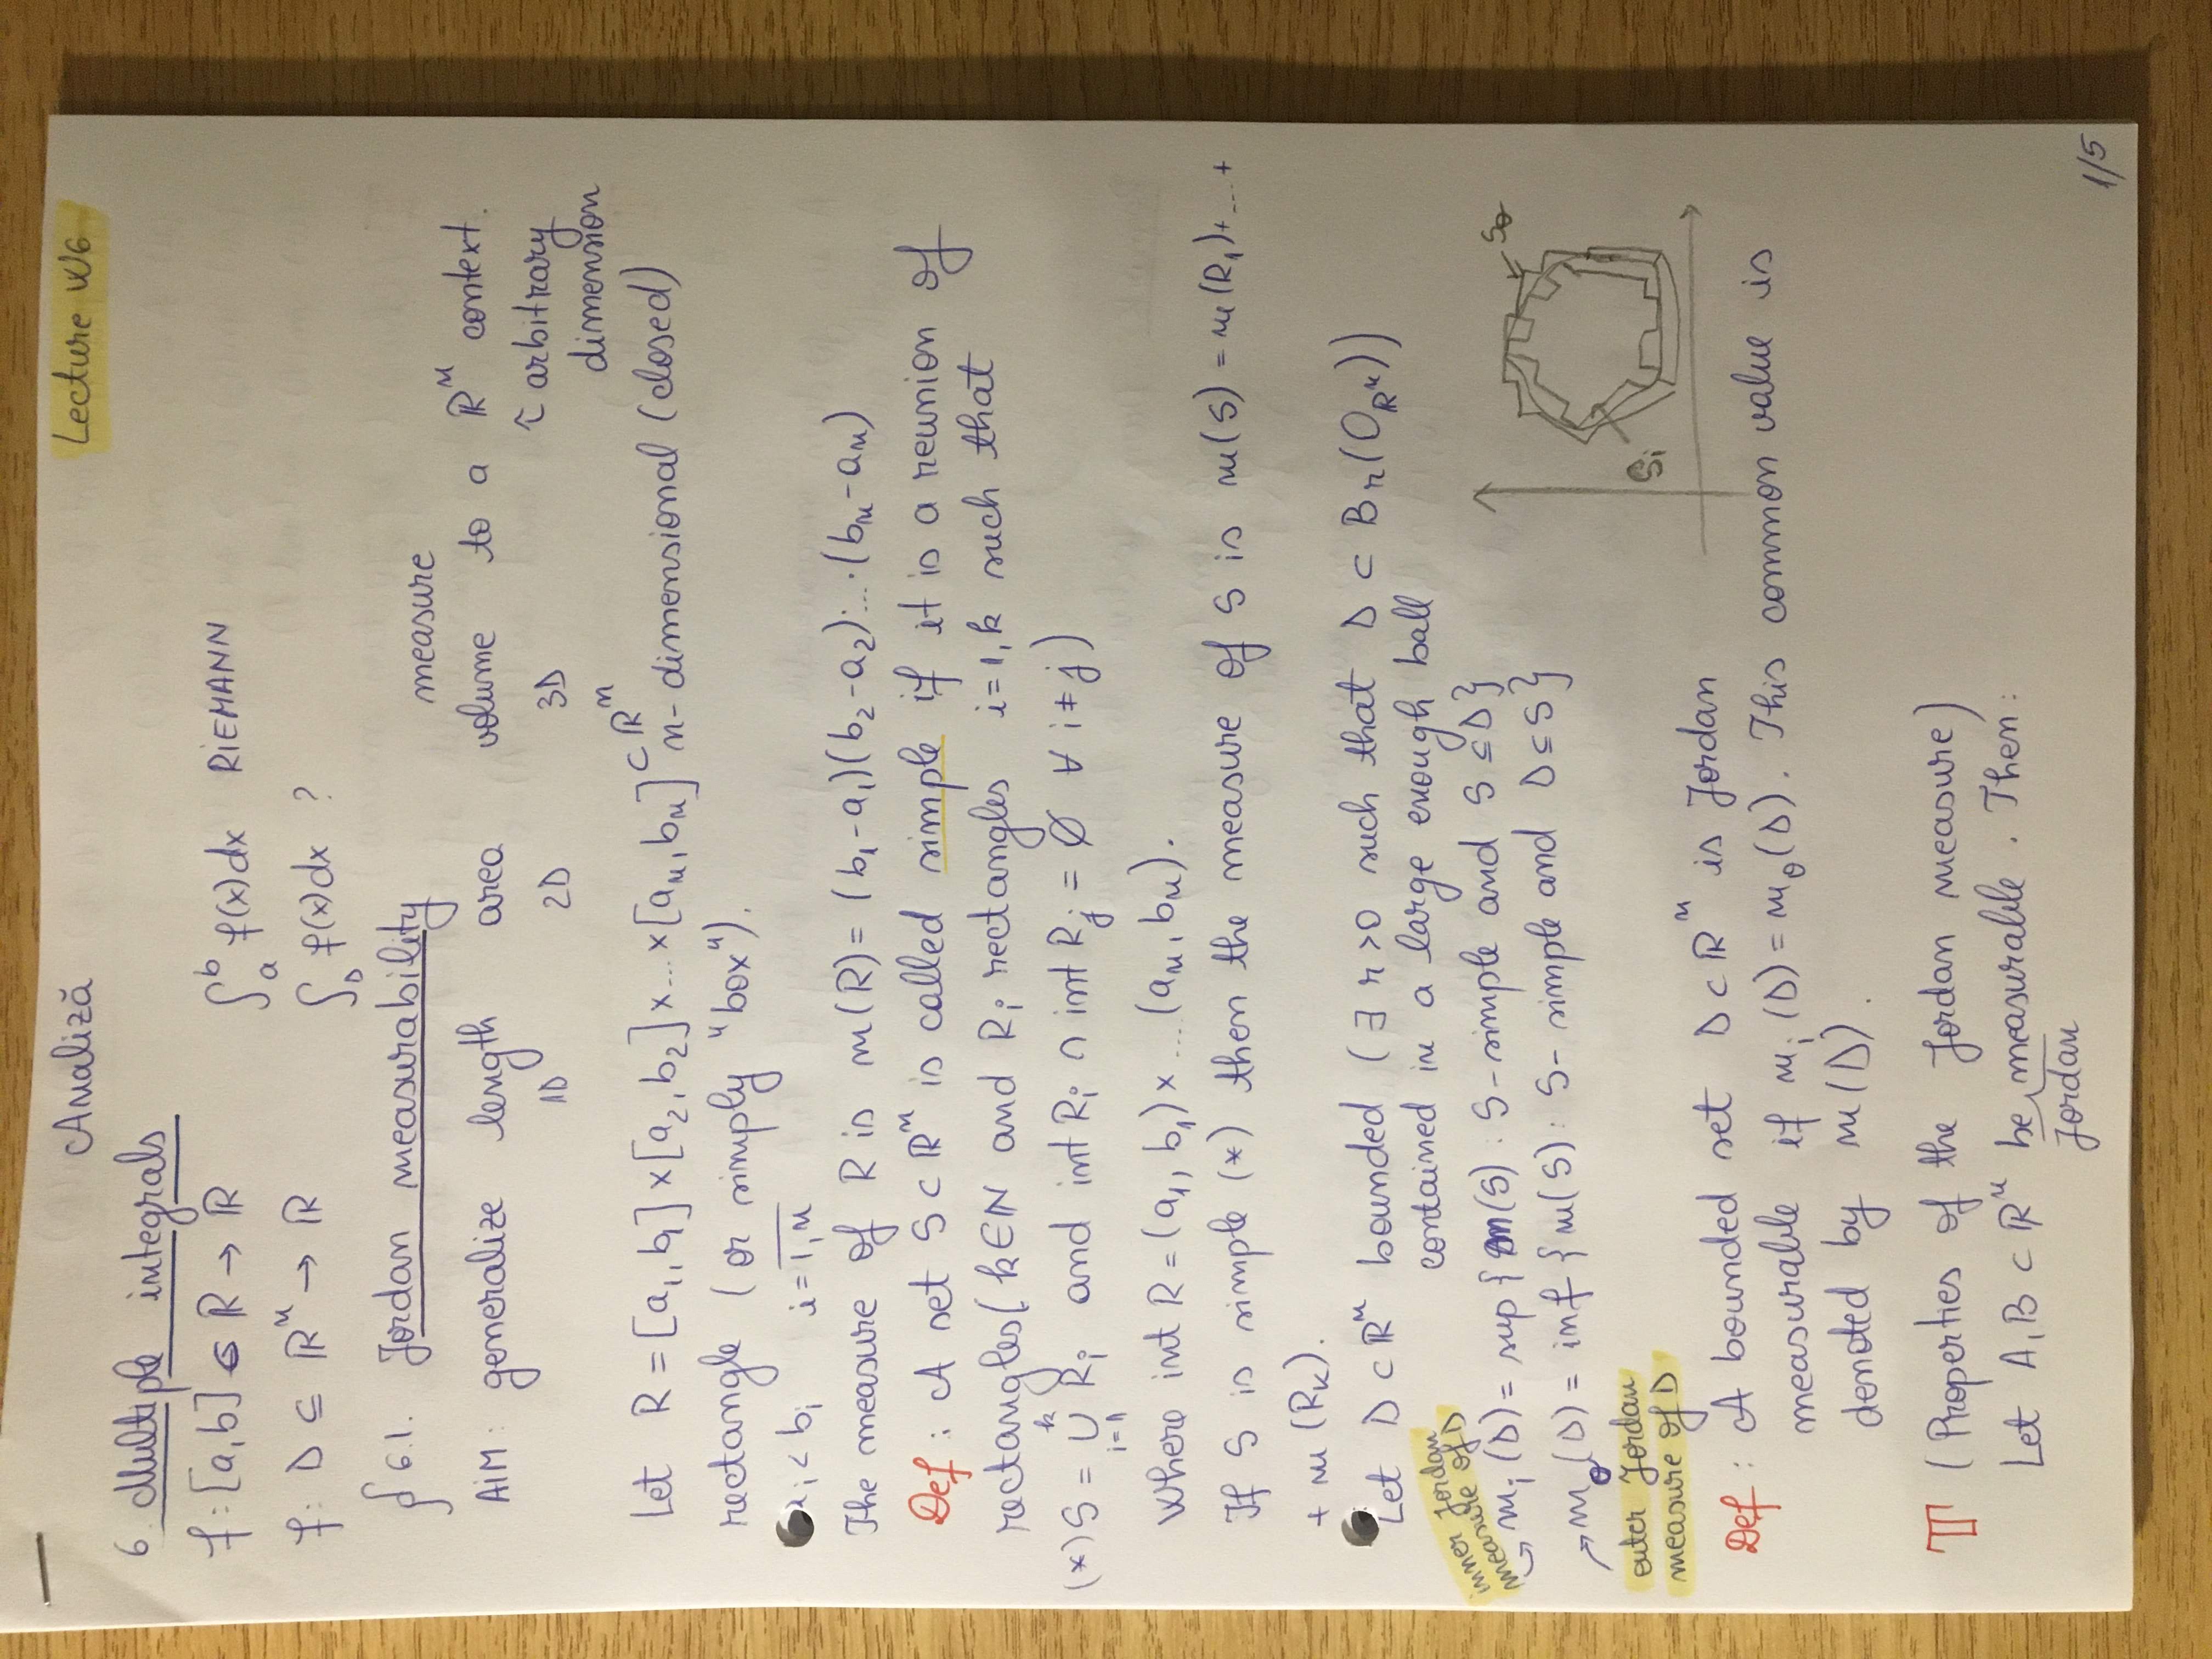 Analiză
Lecture W6
6. Multiple integrals
f: [a,b] ⊂ ℝ → ℝ ∫_a^b f(x)dx RIEMANN
f: D ⊆ ℝⁿ → ℝ ∫_D f(x)dx ?
§ 6.1. Jordan measurability
measure
AIM: generalize length area volume to a ℝⁿ context.
1D 2D 3D ↑ arbitrary
dimension
Let R = [a₁,b₁]×[a₂,b₂]×...×[aₙ,bₙ] ⊂ ℝⁿ n-dimensional (closed)
rectangle (or simply "box").
aᵢ < bᵢ i = 1,n
The measure of R is m(R) = (b₁-a₁)(b₂-a₂)·...·(bₙ-aₙ)
Def: A set S ⊂ ℝⁿ is called simple if it is a reunion of
rectangles (k∈N and Rᵢ rectangles i=1,k such that
(*) S = ⋃_{i=1}^k Rᵢ and int Rᵢ ∩ int Rⱼ = ∅ ∀ i≠j)
where int R = (a₁,b₁)×...(aₙ,bₙ).
If S is simple (*) then the measure of S is m(S) = m(R₁)+...+
+ m(Rₖ).
Let D ⊂ ℝⁿ bounded (∃ r>0 such that D ⊂ Bᵣ(0_ℝⁿ))
contained in a large enough ball
inner Jordan
measure of D
→ mᵢ(D) = sup{m(S): S-simple and S ⊆ D}
→ m₀(D) = inf{m(S): S-simple and D ⊆ S}
outer Jordan
measure of D
Sᵢ
S₀
Def: A bounded set D ⊂ ℝⁿ is Jordan
measurable if mᵢ(D) = m₀(D). This common value is
denoted by m(D).
T (Properties of the Jordan measure)
Let A,B ⊂ ℝⁿ be measurable. Then:
Jordan
1/5